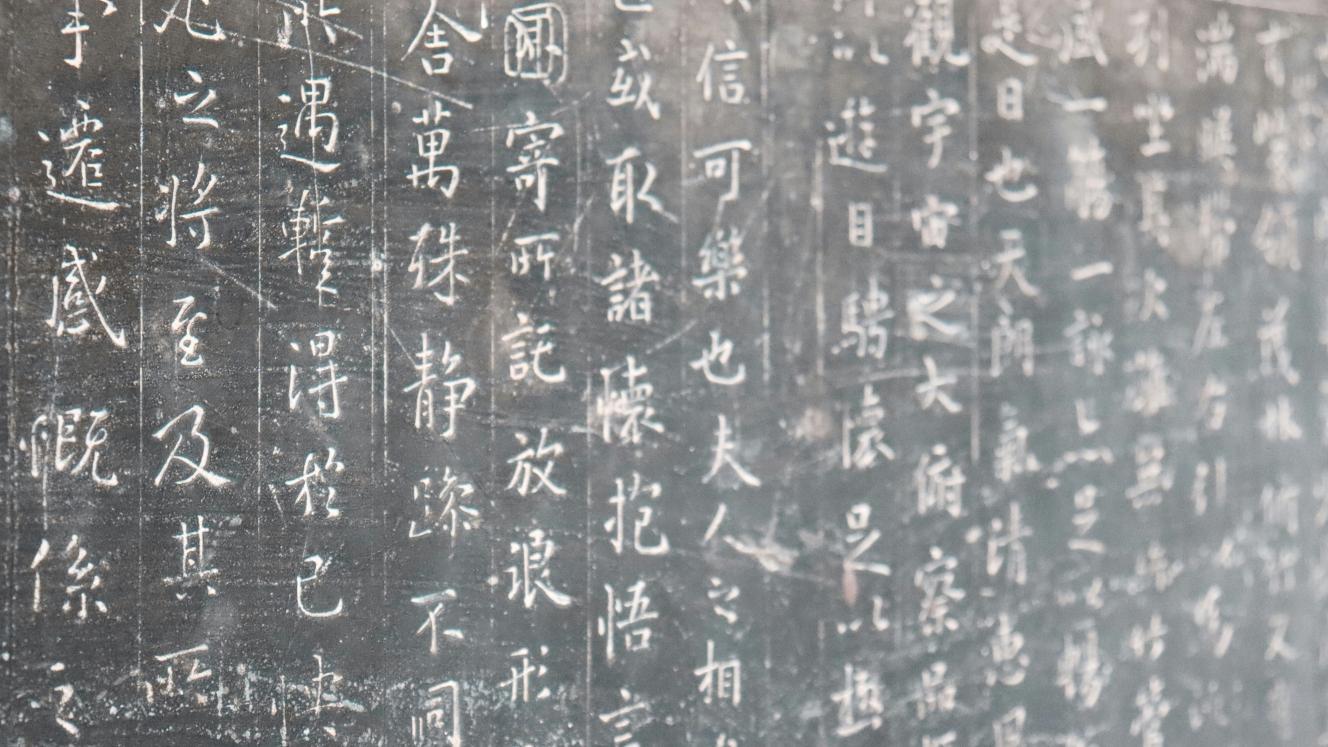 峻領茂林脩竹又
湍暎帶左右引以為流
列坐其次雖無絲竹管
盛一觴一詠亦足以暢
是日也天朗氣清惠風
觀宇宙之大俯察品類
所以遊目騁懷足以極
信可樂也夫人之相
或取諸懷抱悟言
因寄所託放浪形
舍萬殊静躁不同
遇蹔得於己怏
之將至及其所
事遷感慨係之